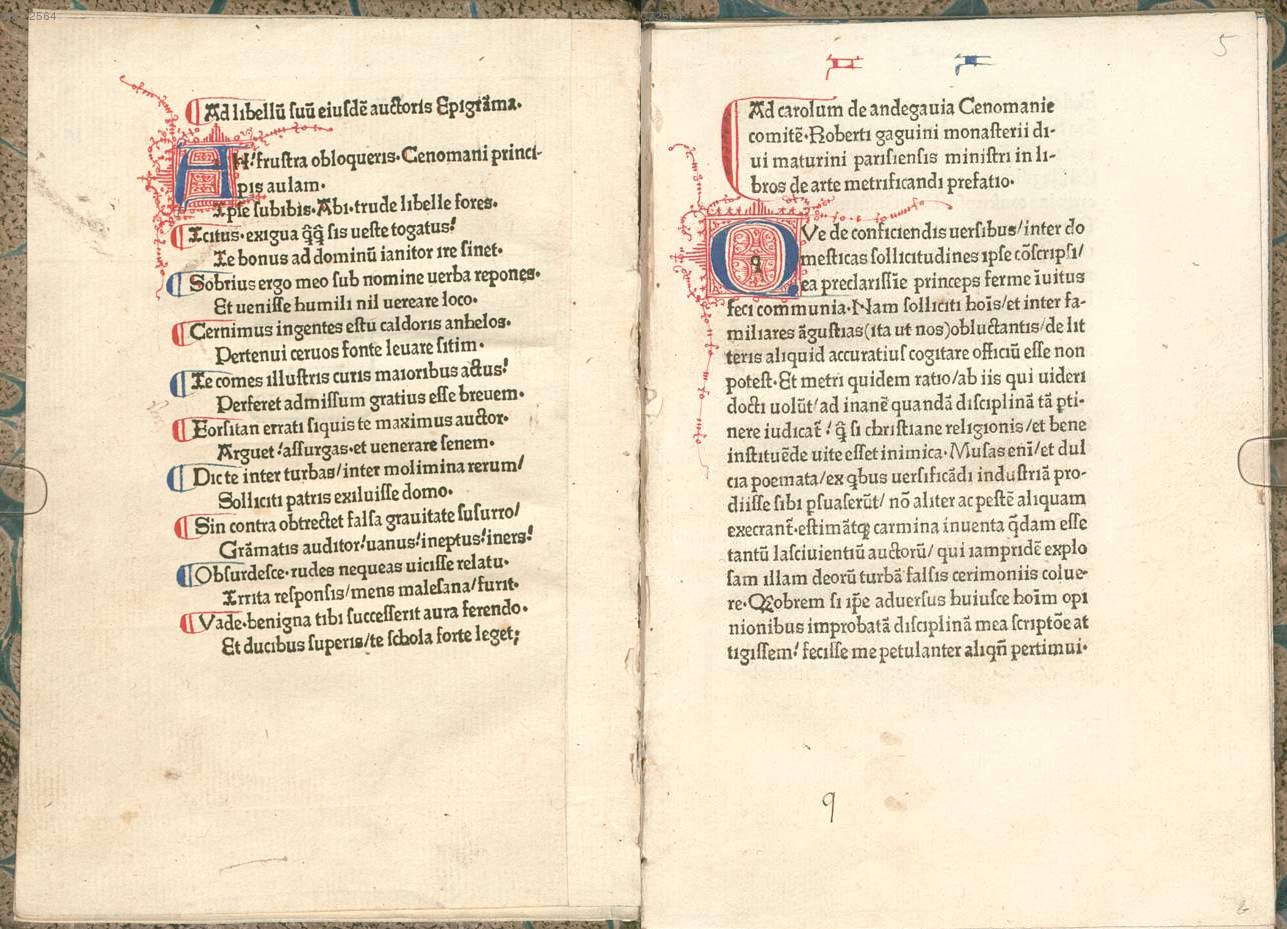 Ad libellū suū eiusdē auctoris Epigrāma.
AH!frustra obloqueris.Cenomani princi-
pis aulam.
Ipse subibis.Abi.trude libelle fores.
Icitus.exigua q̄q̄ sis ueste togatus!
Te bonus ad dominū ianitor ire sinet.
Sobrius ergo meo sub nomine uerba repones.
Et uenisse humili nil uereare loco.
Cernimus ingentes estu caldoris anhelos.
Pertenui ceruos fonte leuare sitim.
Te comes illustris curis maioribus actus!
Perferet admissum gratius esse breuem.
Forsitan errati siquis te maximus auctor.
Arguet!assurgas.et uenerare senem.
Dic te inter turbas/inter molimina rerum/
Solliciti patris exiluisse domo.
Sin contra obtrectet falsa grauitate susurro/
Grāmatis auditor!uanus!ineptus!iners!
Obsurdesce.rudes nequeas uicisse relatu.
Irrita responsis/mens malesana/furit.
Vade.benigna tibi successerit aura ferendo.
Et ducibus superis/te schola forte leget;
5
Ad carolum de andegauia Cenomanie
comitē.Roberti gaguini monasterii di-
ui maturini parisiensis ministri in li-
bros de arte metrificandi prefatio.
QVe de conficiendis uersibus/inter do
mesticas sollicitudines ipse cōscripsi/
ea preclarissīe princeps ferme īuitus
feci communia.Nam solliciti hoīs/et inter fa-
miliares āgustias(ita ut nos)obluctantis/de lit
teris aliquid accuratius cogitare officiū esse non
potest.Et metri quidem ratio/ab iis qui uideri
docti uolūt/ad inanē quandā disciplinā tā pti-
nere iudicat̄!q̄ si christiane religionis/et bene
instituēde uite esset inimica.Musas enī/et dul
cia poemata/ex qbus uersificādi industriā pro-
diisse sibi psuaserūt/nō aliter ac pestē aliquam
execrant̄.estimātqȝ carmina inuenta q̄dam esse
tantū lasciuientiū auctorū/qui iampridē explo
sam illam deorū turbā falsis cerimoniis colue-
re.Qȝobrem si ip̄e aduersus huiusce hoīm opi
nionibus improbatā disciplinā mea scriptōe at
tigissem!fecisse me petulanter aliqn̄ pertimui.
q